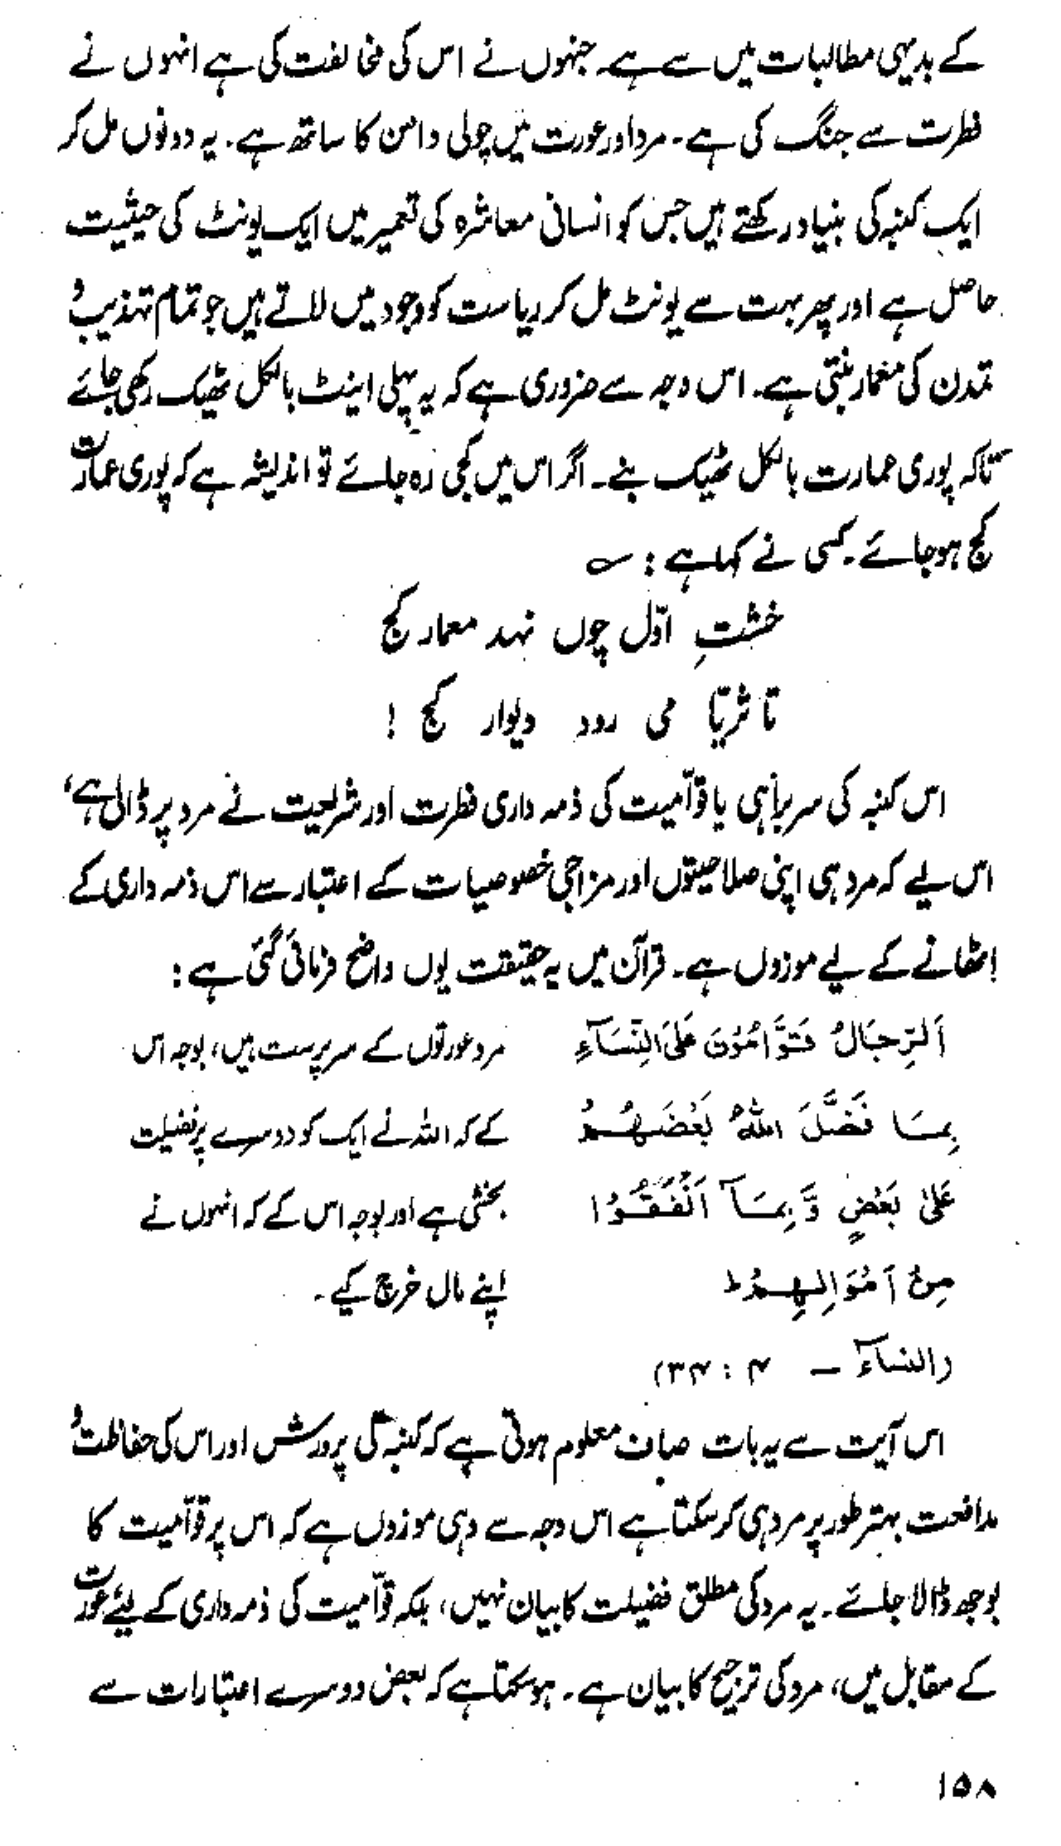 کے بدیہی مطالبات میں سے ہے۔ جنہوں نے اس کی مخالفت کی ہے انہوں نے
فطرت سے جنگ کی ہے۔ مرد اور عورت میں چولی دامن کا ساتھ ہے۔ یہ دونوں مل کر
ایک کنبہ کی بنیاد رکھتے ہیں جس کو انسانی معاشرہ کی تعمیر میں ایک یونٹ کی حیثیت
حاصل ہے اور پھر بہت سے یونٹ مل کر ریاست کو وجود میں لاتے ہیں جو تمام تہذیب و
تمدن کی معمار بنتی ہے۔ اس وجہ سے ضروری ہے کہ یہ پہلی اینٹ بالکل ٹھیک رکھی جائے
تاکہ پوری عمارت بالکل ٹھیک بنے۔ اگر اس میں کجی رہ جائے تو اندیشہ ہے کہ پوری عمارت
کج ہوجائے۔ کسی نے کہا ہے : ؎
خشتِ اوّل چوں نہد معمار کج
تا ثریّا می رود دیوار کج !
اس کنبہ کی سربراہی یا قوّامیت کی ذمہ داری فطرت اور شریعت نے مرد پر ڈالی ہے،
اس لیے کہ مرد ہی اپنی صلاحیتوں اور مزاجی خصوصیات کے اعتبار سے اس ذمہ داری کے
اٹھانے کے لیے موزوں ہے۔ قرآن میں یہ حقیقت یوں واضح فرمائی گئی ہے :
اَلرِّجَالُ قَوَّامُوْنَ عَلَى النِّسَآءِ مرد عورتوں کے سرپرست ہیں، بوجہ اس
بِمَا فَضَّلَ اللّٰهُ بَعْضَهُمْ کے کہ اللہ نے ایک کو دوسرے پر فضیلت
عَلٰى بَعْضٍ وَّ بِمَآ اَنْفَقُوْا بخشی ہے اور بوجہ اس کے کہ انہوں نے
مِنْ اَمْوَالِهِمْ ط اپنے مال خرچ کیے۔
(النساء – ۴ : ۳۴)
اس آیت سے یہ بات صاف معلوم ہوتی ہے کہ کنبہ کی پرورش اور اس کی حفاظت و
مدافعت بہتر طور پر مرد ہی کرسکتا ہے اس وجہ سے وہی موزوں ہے کہ اس پر قوّامیت کا
بوجھ ڈالا جائے۔ یہ مرد کی مطلق فضیلت کا بیان نہیں، بلکہ قوّامیت کی ذمہ داری کے لیئے عورت
کے مقابل میں، مرد کی ترجیح کا بیان ہے۔ ہوسکتا ہے کہ بعض دوسرے اعتبارات سے
۱۵۸